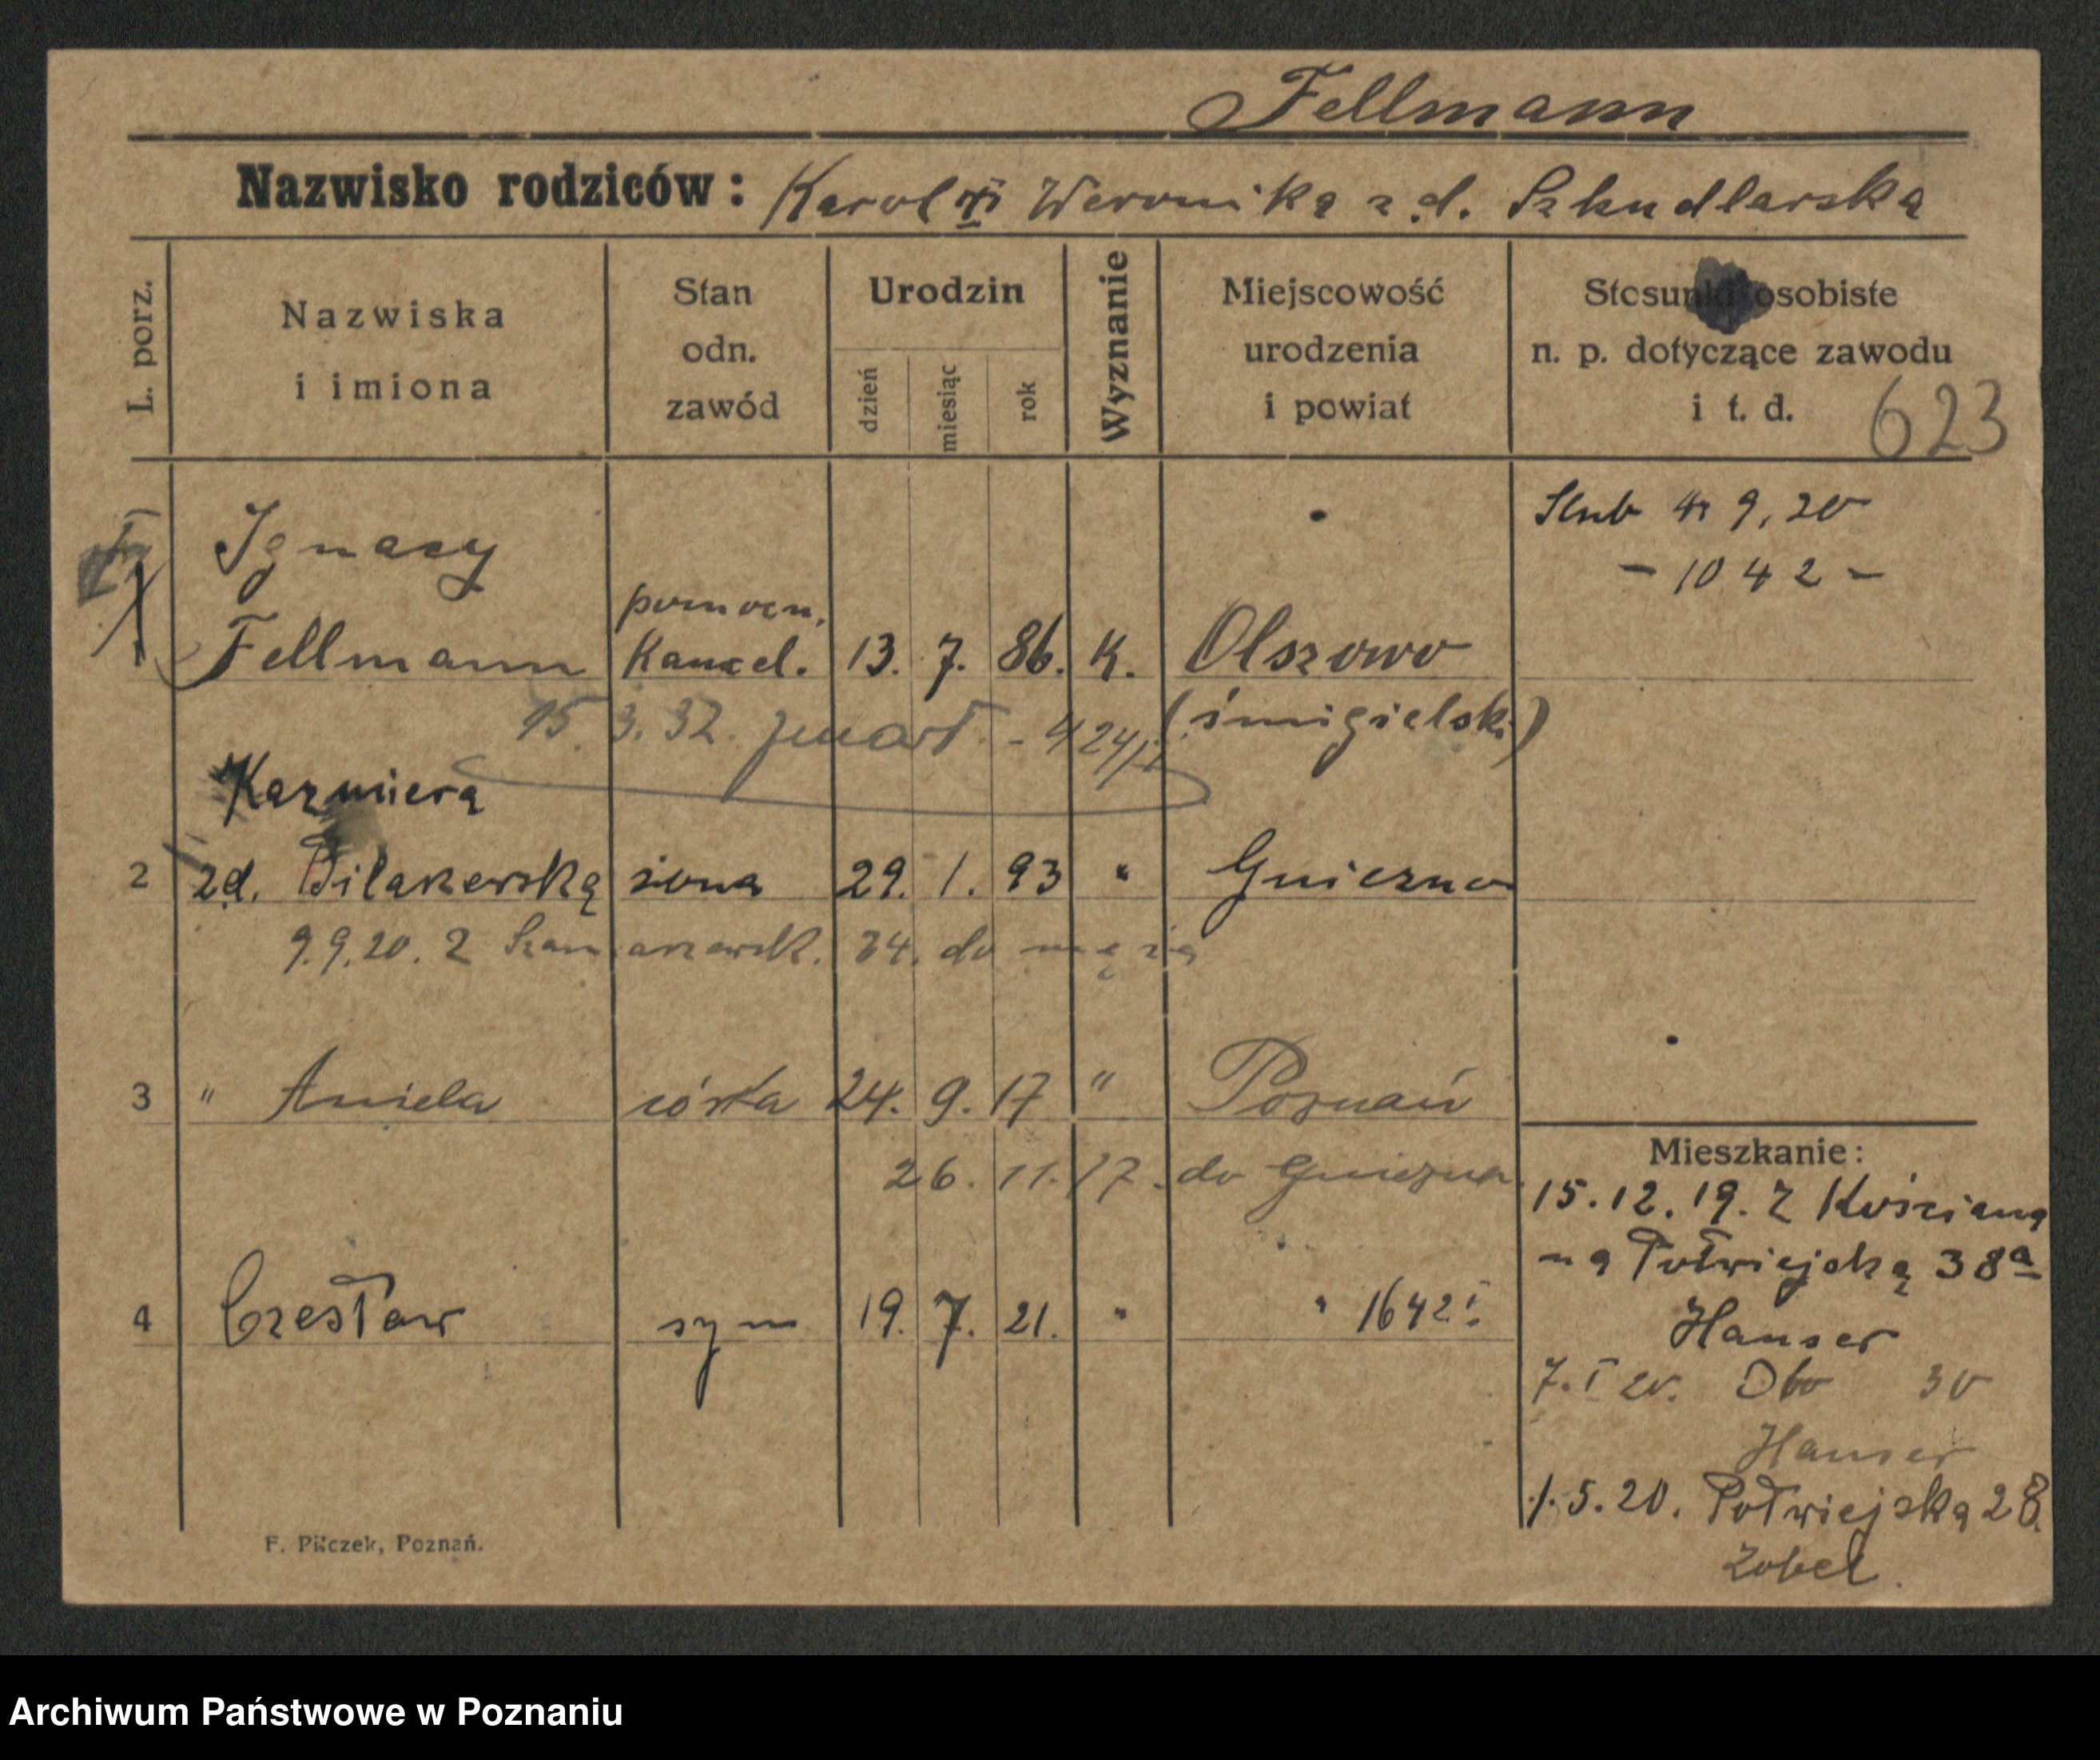 Fellmann
Nazwisko rodziców: Karol i Weronika z d. Szkudlarska
L. porz.
Nazwiska i imiona
Stan odn. zawód
Urodzin
dzień miesiąc rok
Wyznanie
Miejscowość urodzenia i powiat
Stosunki osobiste n. p. dotyczące zawodu i t. d.
623
Ślub 4 9, 20
- 1042 -
Ignacy
pomocn.
Fellmann Kancel. 13. 7. 86. K. Olszowo
15. 3. 32. zmarł - 424/I (śmigielski)
Kazmiera
2 zd. żona 29. 1. 93 " Gniezno
9.9.20. z 34. do męża
3 " Aniela córka 24. 9. 17 " Poznań
26. 11. 17. do Gniezna
4 Czesław syn 19. 7. 21. " " 1642 I
Mieszkanie:
15. 12. 19. z Kościana
na Półwiejską 38a
Hauser
7. I 20. Dto 30
Hauser
1. 5. 20. Półwiejska 28.
Zobel.
F. Pilczek, Poznań.
Archiwum Państwowe w Poznaniu